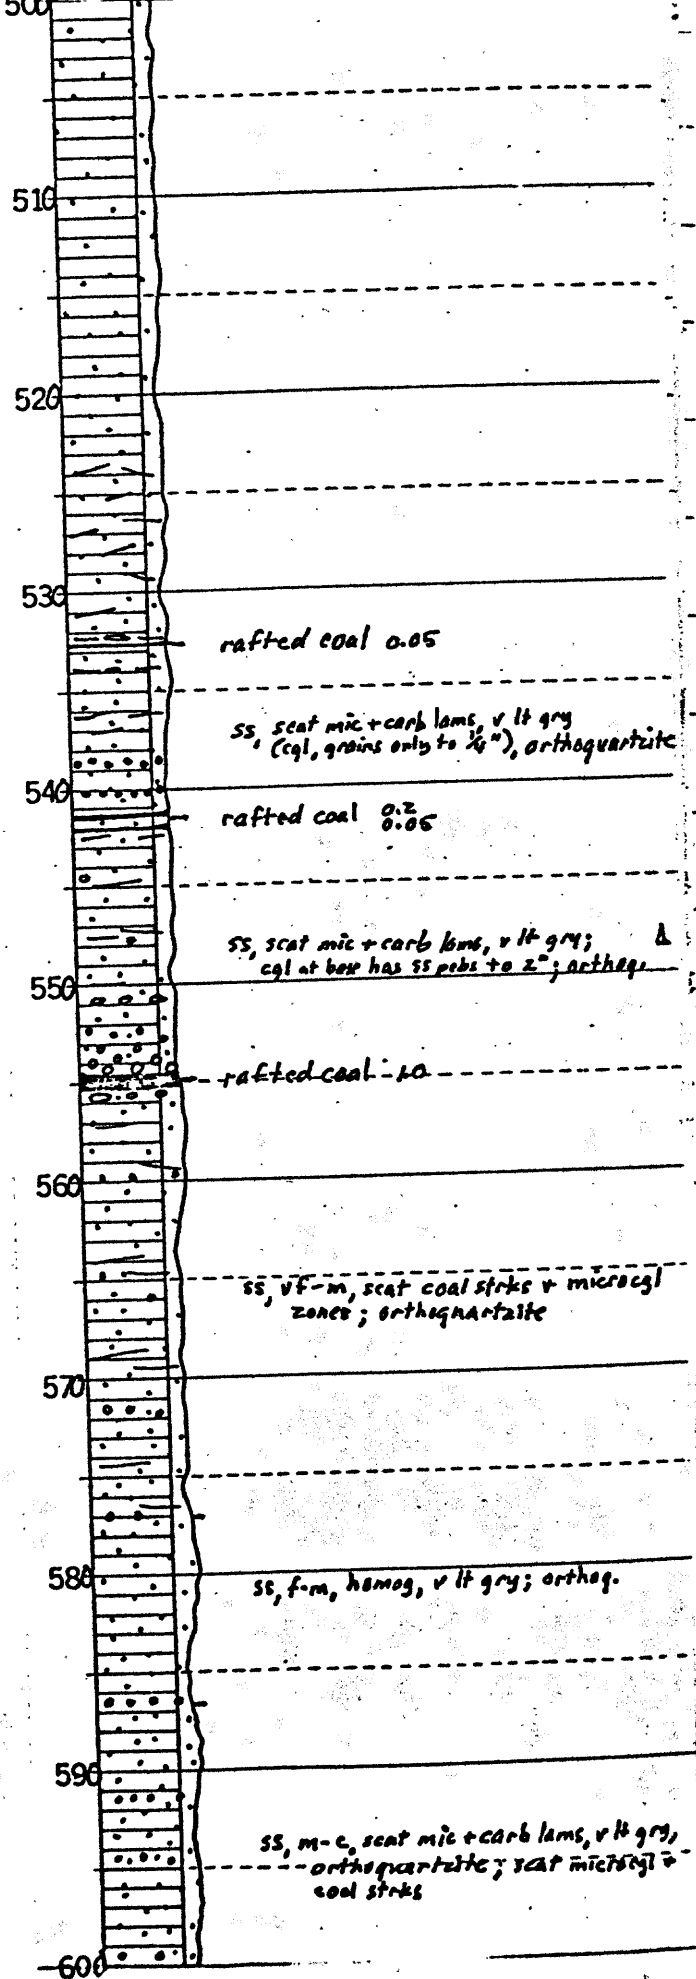 500
510
520
530
rafted coal 0.05
ss, scat mic + carb lams, v lt gry
(cgl, grains only to ¼"), orthoquartzite
540
rafted coal 0.2
0.05
ss, scat mic + carb lams, v lt gry;
cgl at base has ss pebs to 2"; orthoq.
550
rafted coal
560
ss, vf-m, scat coal strks + microcgl
zones; orthoquartzite
570
580
ss, f-m, homog, v lt gry; orthoq.
590
ss, m-c, scat mic + carb lams, v lt gry,
orthoquartzite; scat microcgl +
coal strks
600